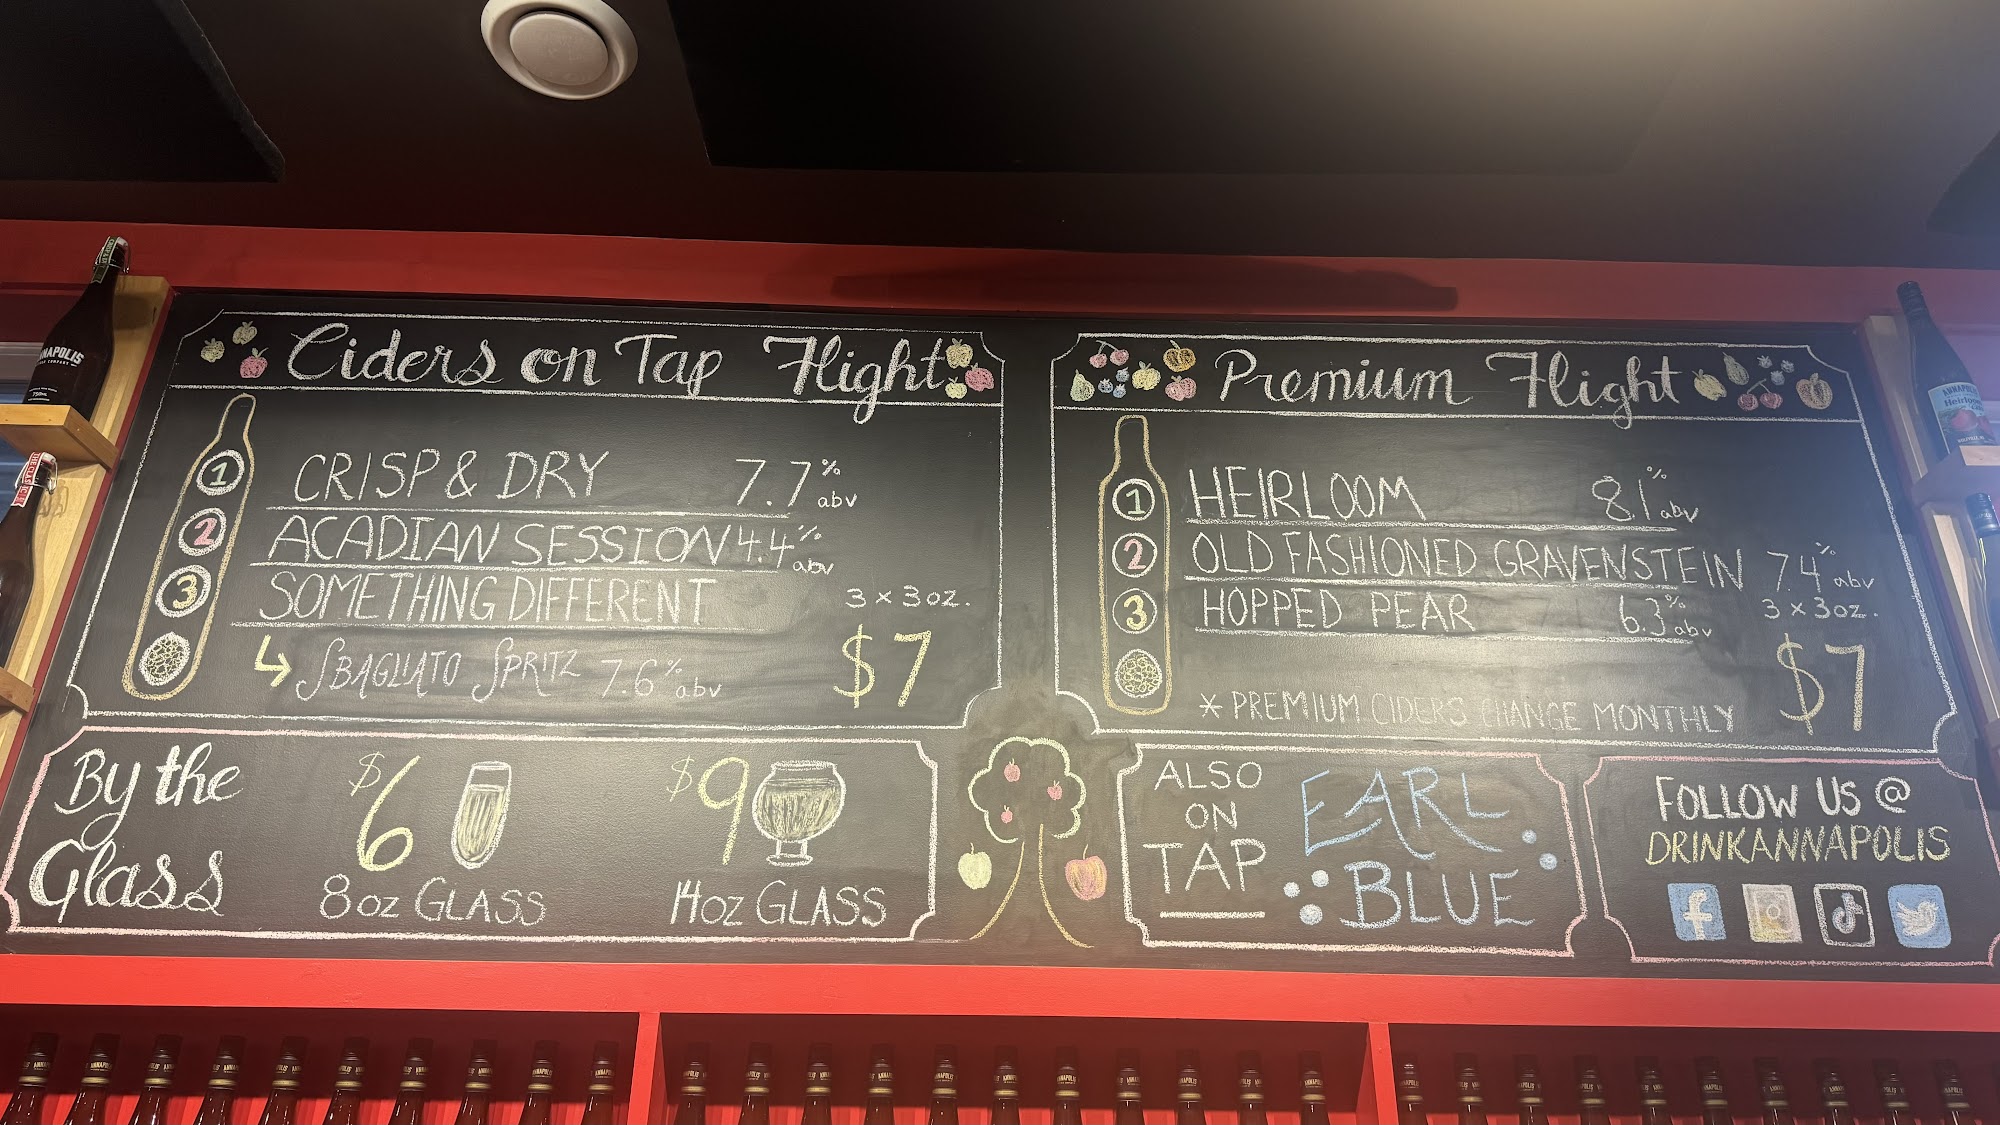 Ciders on Tap Flight
1 CRISP & DRY 7.7% abv
2 ACADIAN SESSION 4.4% abv
3 SOMETHING DIFFERENT
SBAGLIATO SPRITZ 7.6% abv
3 x 3oz.
$7
Premium Flight
1 HEIRLOOM 8.1% abv
2 OLD FASHIONED GRAVENSTEIN 7.4% abv
3 HOPPED PEAR 6.3% abv
3 x 3oz.
$7
* PREMIUM CIDERS CHANGE MONTHLY
By the
Glass
$6
8oz GLASS
$9
14oz GLASS
ALSO
ON
TAP
EARL
BLUE
FOLLOW US @
DRINKANNAPOLIS
NAPOLIS
Heirloom